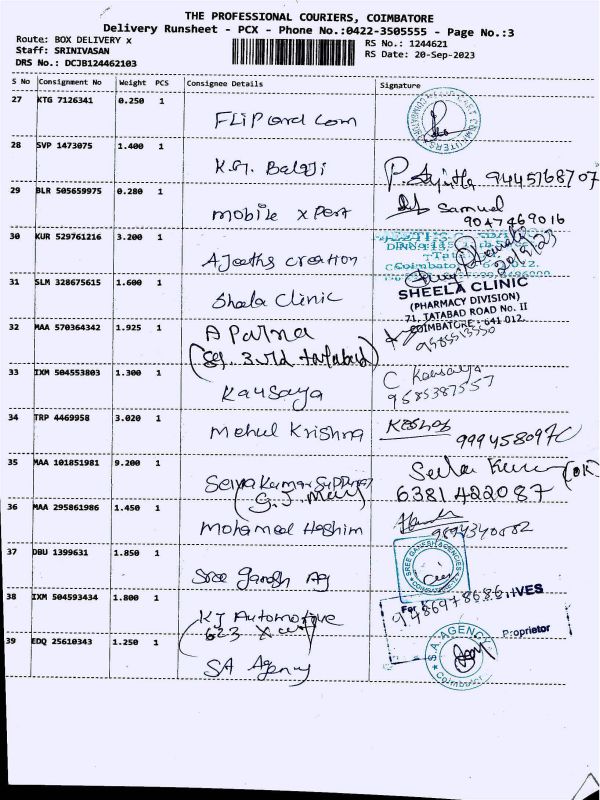 THE PROFESSIONAL COURIERS, COIMBATORE
Delivery Runsheet - PCX - Phone No.:0422-3505555 - Page No.:3
Route: BOX DELIVERY x
RS No.: 1244621
Staff: SRINIVASAN
RS Date: 20-Sep-2023
DRS No.: DCJB124462103
S No Consignment No Weight PCS Consignee Details Signature
27 KTG 7126341 0.250 1
28 SVP 1473075 1.400 1
K.G. Balaji 9445768707
29 BLR 505659975 0.280 1
Samuel
mobile xpert 9047469016
30 KUR 529761216 3.200 1
creation 20/9/23
31 SLM 328675615 1.600 1
SHEELA CLINIC
(PHARMACY DIVISION)
Sheela Clinic
71, TATABAD ROAD No. II
COIMBATORE - 641 012.
32 MAA 570364342 1.925 1
Aparna
(59. 3rd tatabad)
33 IXM 504553803 1.300 1
C Kausalya
Kausaya 9585387557
34 TRP 4469958 3.020 1
Mehul Krishna
35 MAA 101851981 9.200 1
(OK)
6381422087
36 MAA 295861986 1.450 1
Mohamed Hashim
37 DBU 1399631 1.850 1
SREE GANESH AGENCIES
Sree Ganesh Ag
38 IXM 504593434 1.800 1
9486978686
KJ Automotive
Proprietor
39 EDQ 25610343 1.250 1
S.A. AGENCY
SA Agency
Coimbatore